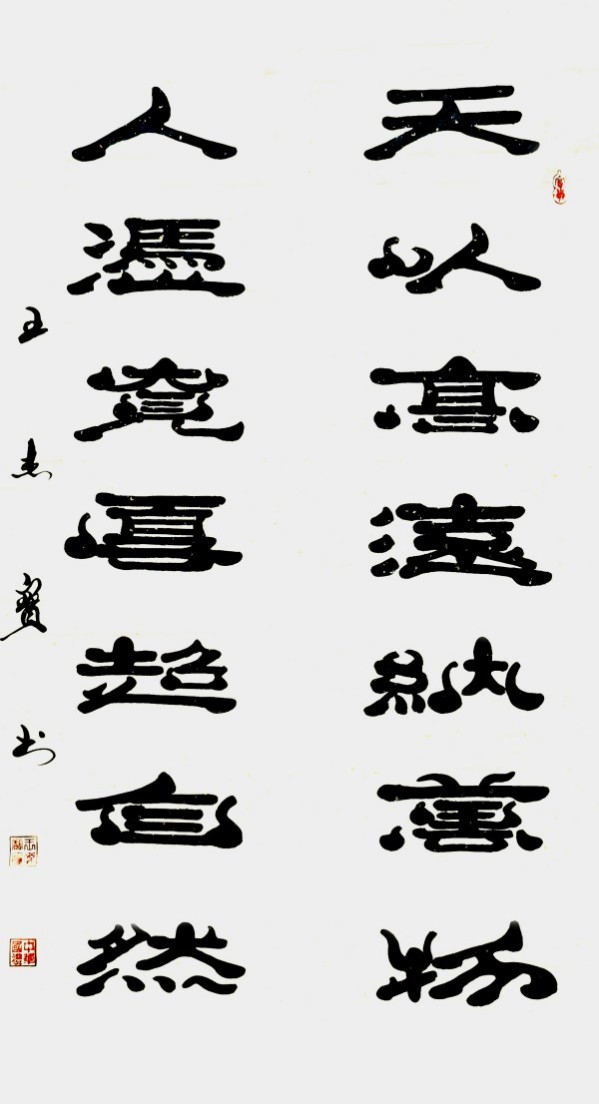 天以高遠納萬物
人憑寬厚超自然
王杰寶书